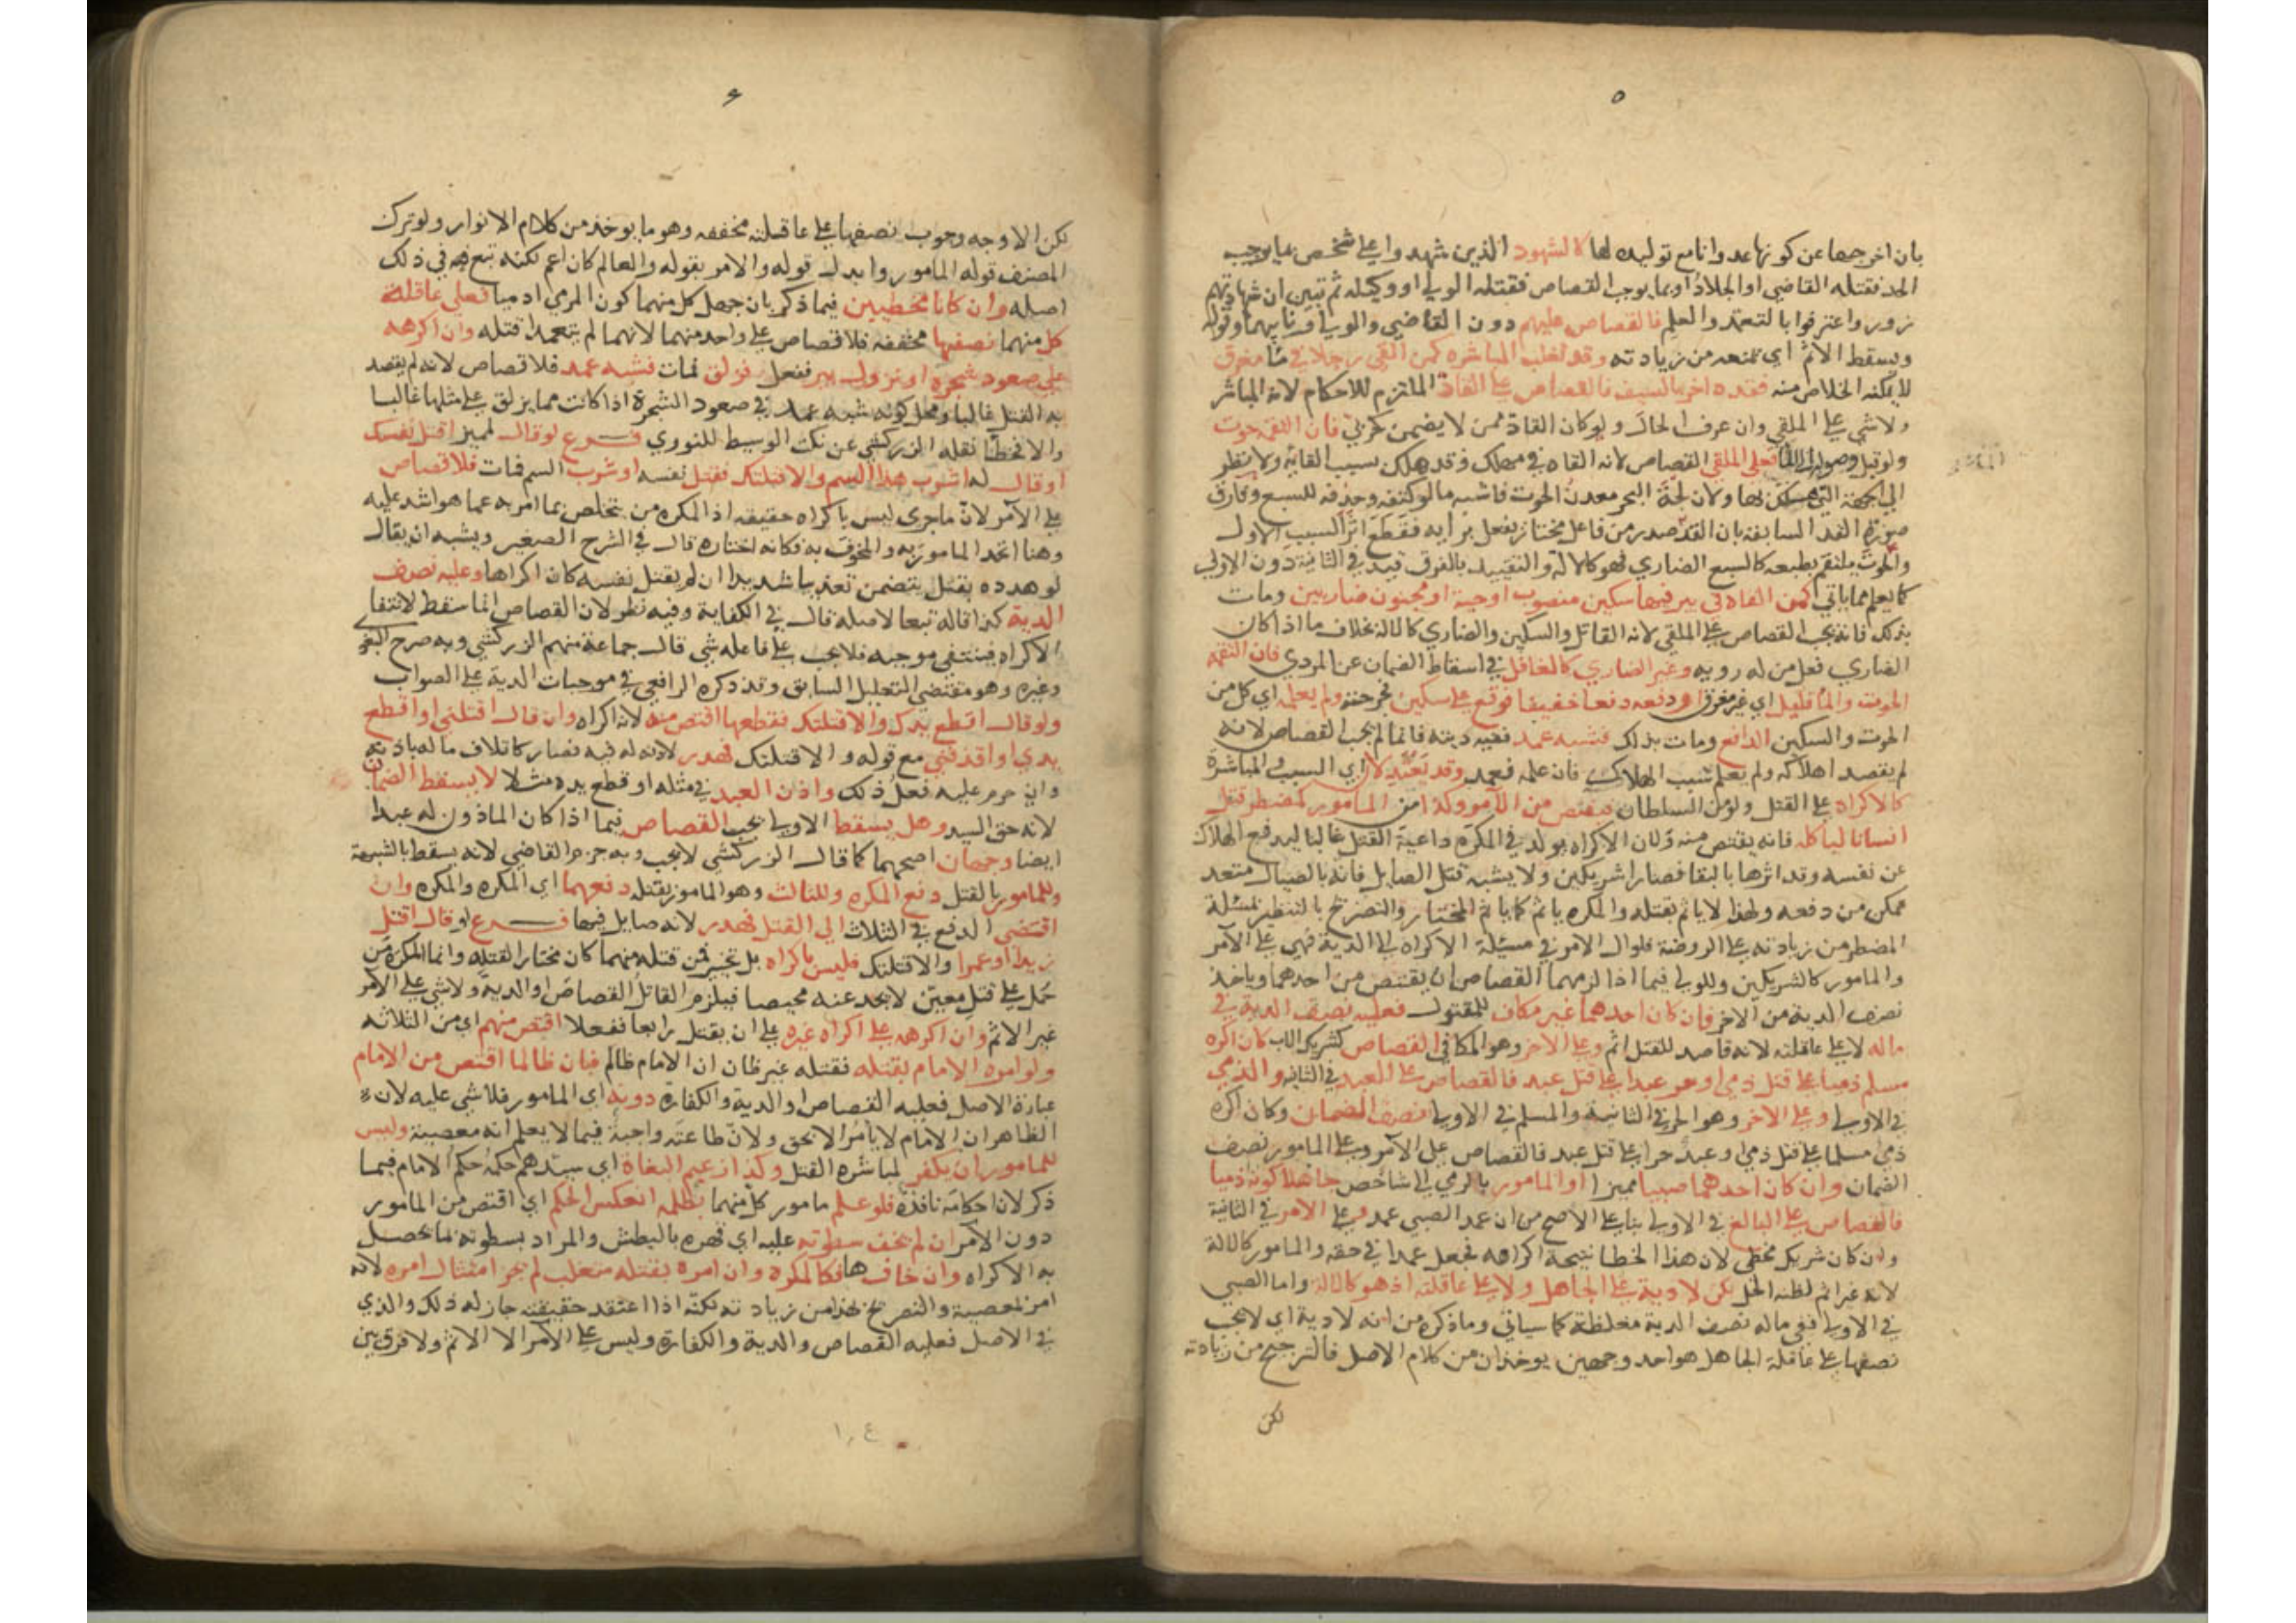 ٥
بان اخرجها عن كونها عدوانا مع توليده لها كالشهود الذين شهدوا على شخص بما يوجب
الحد فقتله القاضي او الجلاد او بما يوجب القصاص فقتله الولي او وكيله ثم تبين ان شهادتهم
زور واعترفوا بالتعمد والعلم فالقصاص عليهم دون القاضي والولي او نايبهما وقوله
ويسقط الاثم اي تمنعه من زيادته وقد تغلب المباشره كمن القى رجلا في ما مغرق
لا يمكنه الخلاص منه فقده اخر بالسيف فالقصاص على القاد الملتزم للاحكام لانه المباشر
ولا شي على الملقي وان عرف الحال ولو كان القاد ممن لا يضمن كحربي فان التقمه حوت
ولو قبل وصوله الما فعلى الملقي القصاص لانه القاه في مهلك وقد هلك بسبب القايه ولا نظر
الى الجهة التي هلك بها ولان لجة البحر معدن الحوت فاشبه ما لو كتفه وحذفه للسبع وفارق
صورة القد السابقة بان القد صدر من فاعل مختار يفعل برايه فقطع اثر السبب الاول
والحوت يلتقم بطبعه كالسبع الضاري فهو كالالة والتقييد بالفرق قيد في الثانية دون الاولى
كما يعلم مما ياتي كمن القاه في بير فيها سكين منصوب او حية او مجنون ضاريين ومات
بذلك فانه يجب القصاص على الملقي لانه القاتل والسكين والضاري كالالة بخلاف ما اذا كان
الضاري فعل من له رويه وغير الضاري كالعاقل في اسقاط الضمان عن المردي فان التقمه
الحوت والما قليل اي غير مغرق او دفعه دفعا خفيفا فوقع على سكين فجرحته ولم يعلمه اي كل من
الحوت والسكين الدافع ومات بذلك فشبه عمد ففيه ديته فانما لم يجب القصاص لانه
لم يقصد اهلاكه ولم يعلم سبب الهلاك فان علمه فعمد وقد يعتدلان اي السبب والمباشرة
كالاكراه على القتل ولو من السلطان فيقتص من الامر وكذا من المامور كمضطر قتل
انسانا لياكله فانه يقتص منه ولان الاكراه يولد في المكره داعية القتل غالبا ليدفع الهلاك
عن نفسه وقد اثرها بالبقا فصارا شريكين ولا يشبه قتل الصايل فانه بالصيال متعد
ممكن من دفعه ولهذا لا ياثم بقتله والمكره ياثم كما ياثم المختار والتصريح بالتنظير بمسئلة
المضطر من زيادته على الروضة فلو ال الامر في مسيلة الاكراه الى الدية فهي على الآمر
والمامور كالشريكين وللولي فيما اذا لزمهما القصاص ان يقتص من احدهما وياخذ
نصف الدية من الاخر فان كان احدهما غير مكاف للمقتول فعليه نصف الدية في
ماله لا على عاقلته لانه قاصد للقتل اثم وعلى الاخر وهو المكافي القصاص كشريك الاب كان اكره
مسلم ذميا على قتل ذمي او حر عبدا على قتل عبد فالقصاص على العبد في الثانيه والذمي
في الاولى وعلى الاخر وهو الحر في الثانية والمسلم في الاولى نصف الضمان وكان اكره
ذمي مسلما على قتل ذمي او عبد حرا على قتل عبد فالقصاص على الآمر وعلى المامور نصف
الضمان وان كان احدهما صبيا مميزا او المامور بالرمي الى شاخص جاهلا كونه ذميا
فالقصاص على البالغ في الاولى بنا على الاصح من ان عمد الصبي عمد وعلى الامر في الثانية
وان كان شريك مخطي لان هذا الخطا نتيجة اكراهه فجعل عمدا في حقه والمامور كالالة
لانه غير اثم لظنه الحل لكن لا دية على الجاهل ولا على عاقلته اذ هو كالالة واما الصبي
في الاولى ففي ماله نصف الدية مغلظة كما سياتي وما ذكره من انه لا دية اي لا يجب
نصفها على عاقلة الجاهل هو احد وجهين يوخذان من كلام الاصل فالترجيح من زيادته
لكن
٦
لكن الاوجه وجوب نصفها على عاقلته مخففه وهو ما يوخذ من كلام الانوار ولو ترك
المصنف قوله المامور وابدل قوله والامر بقوله والعالم كان اعم لكنه تبع فيه في ذلك
اصله وان كانا مخطيين فيما ذكر بان جهل كل منهما كون المرمي ادميا فعلى عاقلة
كل منهما نصفها مخففه فلا قصاص على واحد منهما لانهما لم يتعمدا قتله وان اكرهه
على صعود شجره او نزول بير ففعل فزلق فمات فشبه عمد فلا قصاص لانه لم يقصد
به القتل غالبا ومحل كونه شبه عمد في صعود الشجرة اذا كانت مما يزلق على مثلها غالبا
والا فخطا نقله الزركشي عن نكت الوسيط للنووي فــرع لو قال لمميز اقتل نفسك
او قال له اشرب هذا السم والا قتلتك فقتل نفسه او شرب السم فمات فلا قصاص
على الآمر لان ما جرى ليس باكراه حقيقه اذ المكره من يتخلص بما امر به عما هو اشد عليه
وهنا اتحد المامور به والمخوف به فكانه اختاره قال في الشرح الصغير ويشبه ان يقال
لو هدده بقتل يتضمن تعذيبا شديدا ان لم يقتل نفسه كان اكراها وعليه نصف
الدية كذا قاله تبعا لاصله قال في الكفاية وفيه نظر لان القصاص انما سقط لانتفا
الاكراه فينتفي موجبه فلا يجب على فاعله شي قال جماعة منهم الزركشي وبه صرح البغوي
وغيره وهو مقتضى التعليل السابق وقد ذكره الرافعي في موجبات الدية على الصواب
ولو قال اقطع يدك والا قتلتك فقطعها اقتص منه لانه اكراه وان قال اقتلني او اقطع
يدي او اقذفني مع قوله والا قتلتك فهدر لاذنه له فيه فصار كاتلاف ماله باذنه
وان حرم عليه فعل ذلك واذن العبد في مثله او قطع يده مثلا لا يسقط الضمان
لانه حق السيد وهل يسقط الاولى يجب القصاص فيما اذا كان الماذون له عبدا
ايضا وجهان اصحهما كما قال الزركشي لا يجب وبه جزم القاضي لانه يسقط بالشبهة
وللمامور بالقتل دفع المكره وللثالث وهو المامور بقتله دفعهما اي المكره والمكره وان
اقتضى الدفع في الثلاث الى القتل فهدر لانه صايل فيها فــرع لو قال اقتل
زيدا او عمرا والا قتلتك فليس باكراه بل تخيير فمن قتله منهما كان مختارا لقتله وانما المكره من
حمل على قتل معين لا يجد عنه محيصا فيلزم القاتل القصاص او الدية ولا شي على الآمر
غير الاثم وان اكرهه على اكراه غيره على ان يقتل رابعا ففعلا اقتص منهم اي من الثلاثه
ولو امره الامام بقتله فقتله غير ظان ان الامام ظالم فبان ظالما اقتص من الامام
عبارة الاصل فعليه القصاص او الدية والكفارة دونه اي المامور فلا شي عليه لان
الظاهر ان الامام لا يامر الا بحق ولان طاعته واجبة فيما لا يعلم انه معصية وليس
للمامور ان يكفر لمباشره القتل وكذا زعيم البغاة اي سيدهم حكمه حكم الامام فيما
ذكر لان احكامه نافذة فلو علم مامور كل منهما بظلمه انعكس الحكم اي اقتص من المامور
دون الآمر ان لم يخف سطوته عليه اي قهره بالبطش والمراد بسطوته ما يحصل
به الاكراه وان خافها فكالمكره وان امره بقتله متغلب لم يجز امتثال امره لانه
امر بمعصية والتصريح بهذا من زيادته لكنه اذا اعتقد حقيقته جاز له ذلك والذي
في الاصل فعليه القصاص والدية والكفارة وليس على الآمر الا الاثم ولا فرق بين